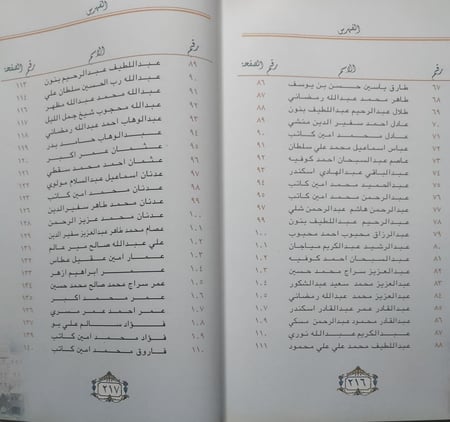 الفهرس
رقم الاسم رقم الصفحة
٦٧ طارق ياسين حسن بن يوسف ٨٦
٦٨ طاهر محمد عبدالله رمضاني ٨٧
٦٩ طلال عبدالرحيم عبداللطيف بنون ٨٨
٧٠ عادل احمد سفير الدين منشي ٨٩
٧١ عادل محمد امين كاتب ٩٠
٧٢ عباس اسماعيل محمد علي سلطان ٩١
٧٣ عاصم عبدالسبحان احمد كوفيه ٩٢
٧٤ عبدالباقي عبدالهادي اسكندر ٩٣
٧٥ عبدالحميد محمد امين كاتب ٩٤
٧٦ عبدالرحمن محمد امين كاتب ٩٥
٧٧ عبدالرحمن هاشم عبدالرحمن شلي ٩٧
٧٨ عبدالرحيم عبداللطيف بنون ٩٩
٧٩ عبدالرزاق محبوب احمد محبوب ١٠٠
٨٠ عبدالرشيد عبدالكريم مياجان ١٠١
٨١ عبدالسبحان احمد كوفيه ١٠٢
٨٢ عبدالعزيز سراج محمد حسين ١٠٣
٨٣ عبدالعزيز محمد سعيد عبدالشكور ١٠٤
٨٤ عبدالعزيز محمد عبدالله رمضاني ١٠٥
٨٥ عبدالقادر عمر عبدالقادر اسكندر ١٠٧
٨٦ عبدالقادر محمود عبدالرحمن مسكي ١٠٩
٨٧ عبدالكريم عبدالله نوري ١١٠
٨٨ عبداللطيف محمد علي علي محمود ١١١
٢١٦
الفهرس
رقم الاسم رقم الصفحة
٨٩ عبداللطيف عبدالرحيم بنون ١١٣
٩٠ عبدالله رب الحسين سلطان علي ١١٤
٩١ عبدالله محمد عبدالله مظهر
٩٢ عبدالله محجوب شيخ جمل الليل
٩٣ عبدالوهاب احمد عبدالله رمضاني
٩٤ عبدالوهاب حامد بدر
٩٥ عثمان عمر اكبر
٩٦ عثمان احمد محمد سقطي
٩٧ عدنان اسماعيل عبدالسلام مولوي
٩٨ عدنان محمد امين كاتب
٩٩ عدنان محمد طاهر سفير الدين
١٠٠ عدنان محمد عزيز الرحمن
١٠١ عصام محمد طاهر عبدالعزيز سفير الدين
١٠٢ علي عبدالله صالح مير عالم
١٠٣ عمار امين عقيل عطاس
١٠٤ عمر ابراهيم ازهر
١٠٥ عمر سراج محمد صالح محمد حسين ١٣٤
١٠٦ عمر محمد اكبر ١٣٥
١٠٧ عمر احمد عمر مسري ١٣٦
١٠٨ فؤاد سالم علي بو ١٣٧
١٠٩ فؤاد محمد امين كاتب ١٣٩
١١٠ فاروق محمد امين كاتب ١٤٠
٢١٧